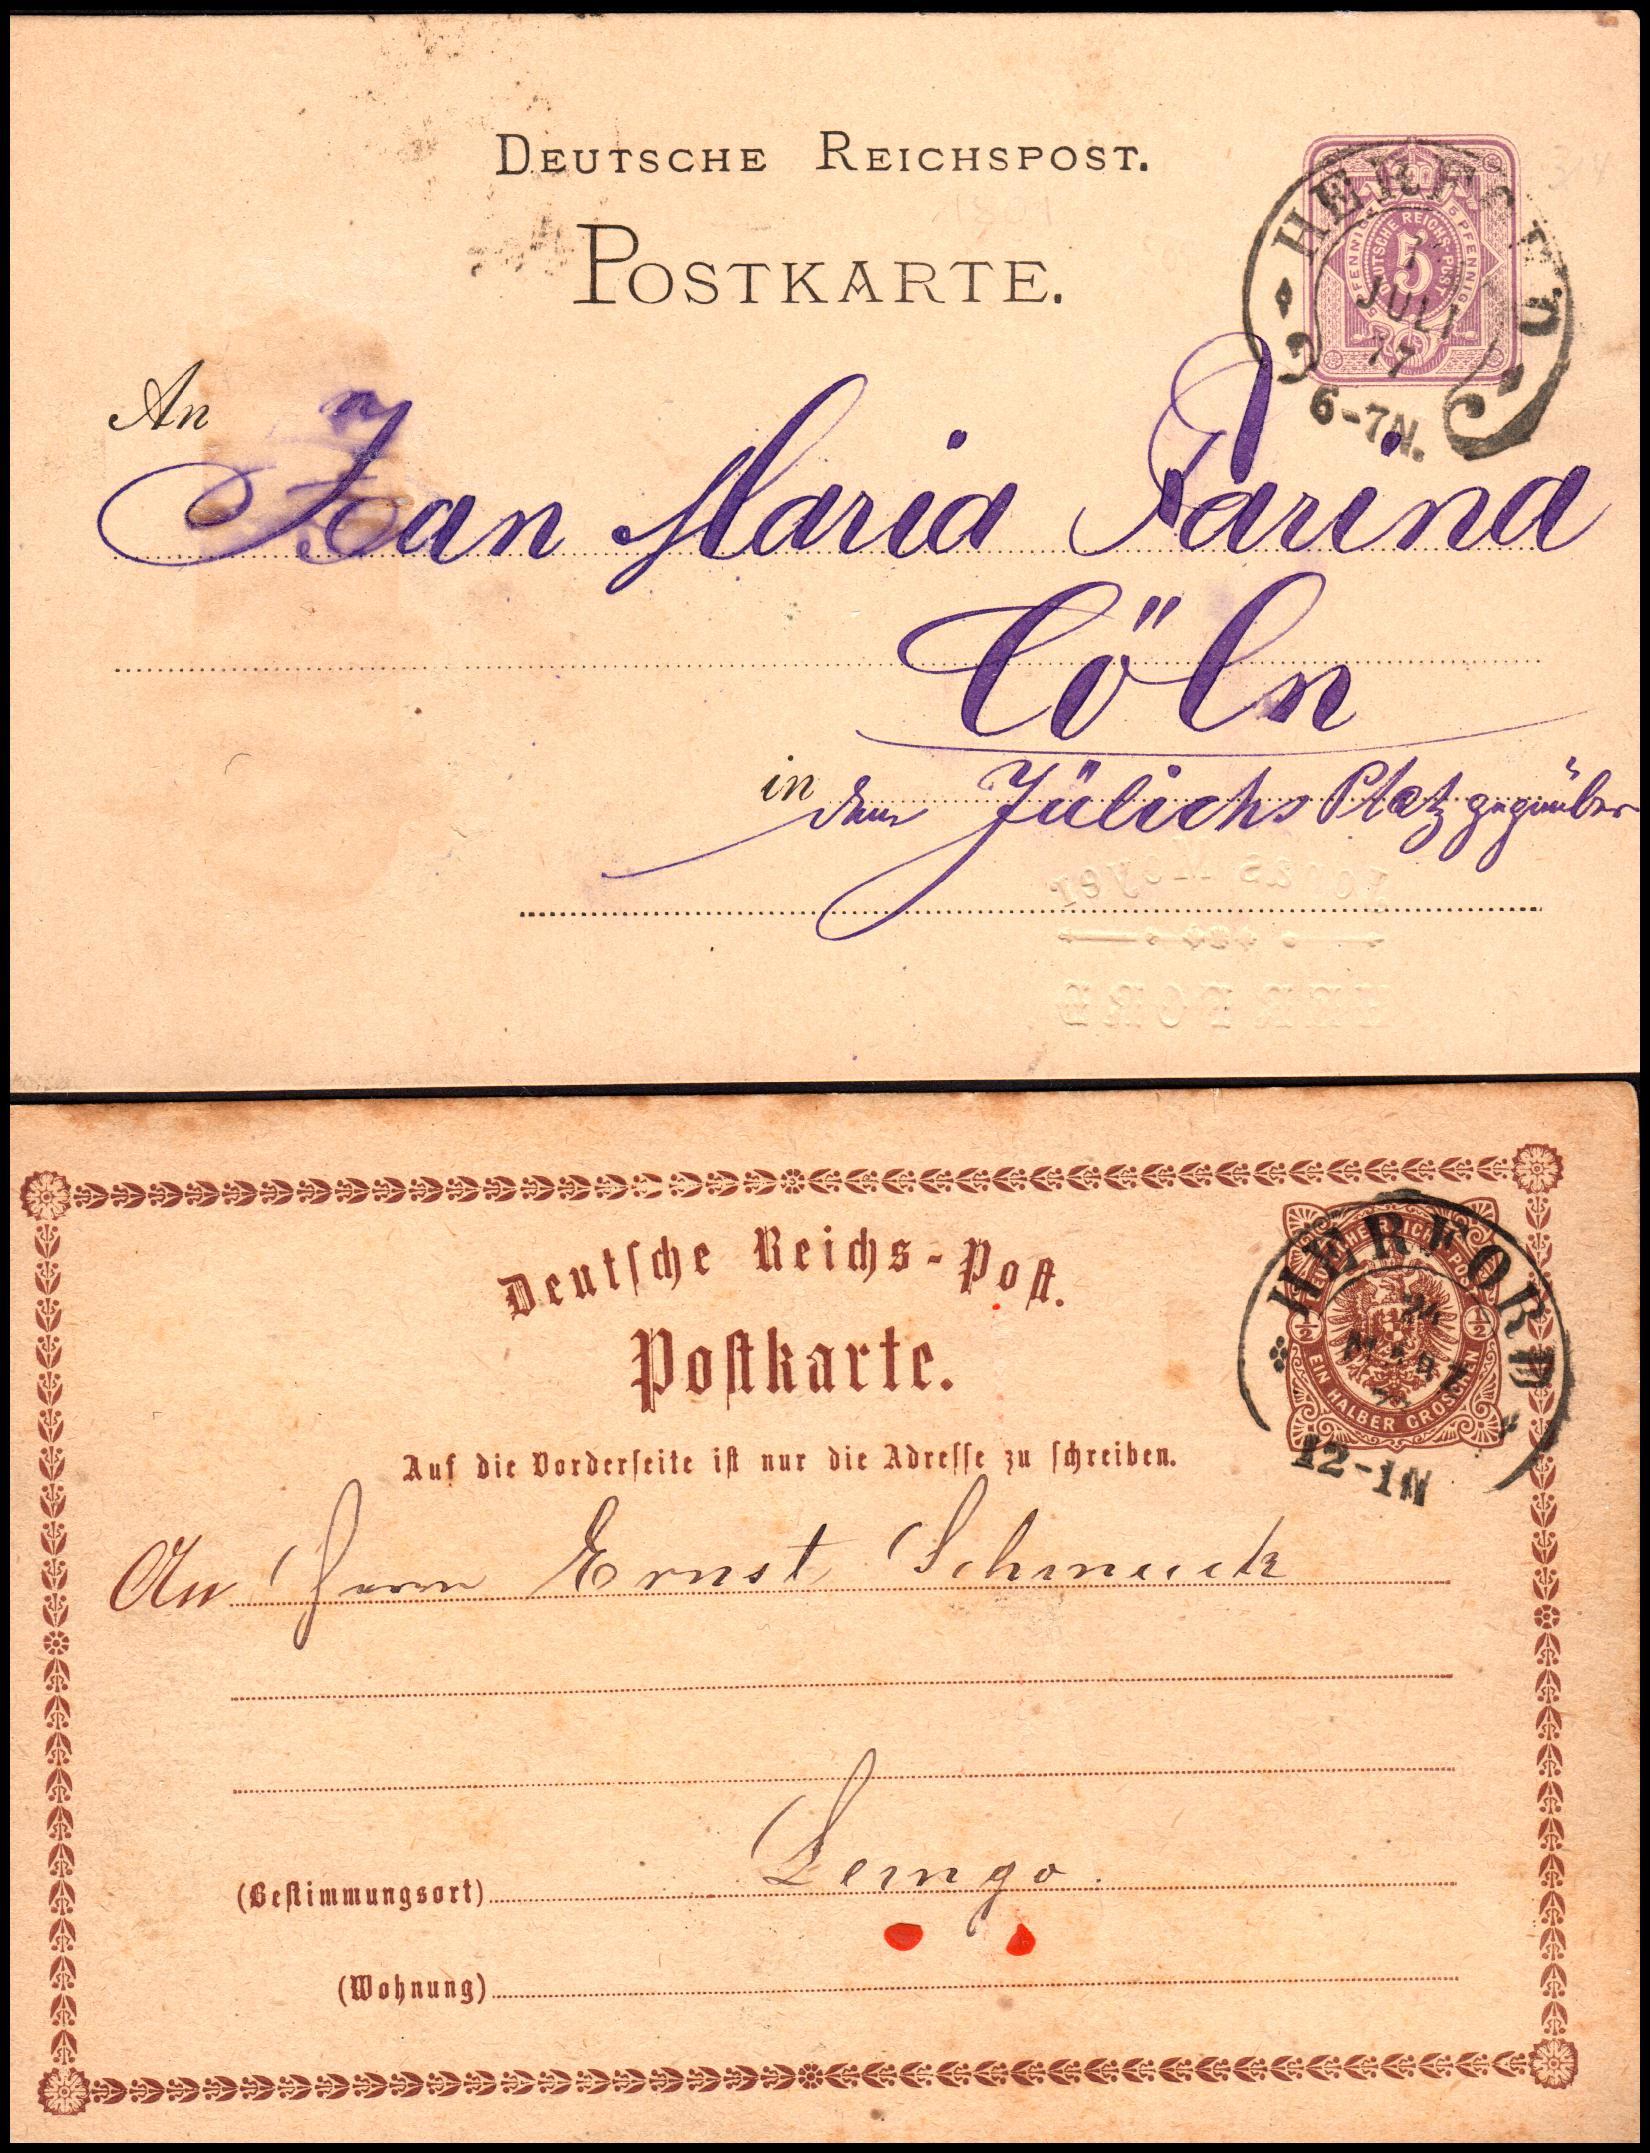 DEUTSCHE REICHSPOST.
POSTKARTE.
5 PFENNIG
5 PFENNIG
DEUTSCHE REICHS-POST
5
HERFORD
JULI
77
6-7N.
An
Jean Maria Farina
Cöln
in
dem Jülichs Platz gegenüber
Meyer
HERFORD
Deutſche Reichs-Poſt.
Poſtkarte.
Auf die Vorderſeite iſt nur die Adreſſe zu ſchreiben.
DEUTSCHE REICHS POST
½
½
EIN HALBER GROSCHEN
HERFORD
24
MÄRZ
12-1N
An Herrn Ernst Schmuck
Lemgo.
(Beſtimmungsort)
(Wohnung)